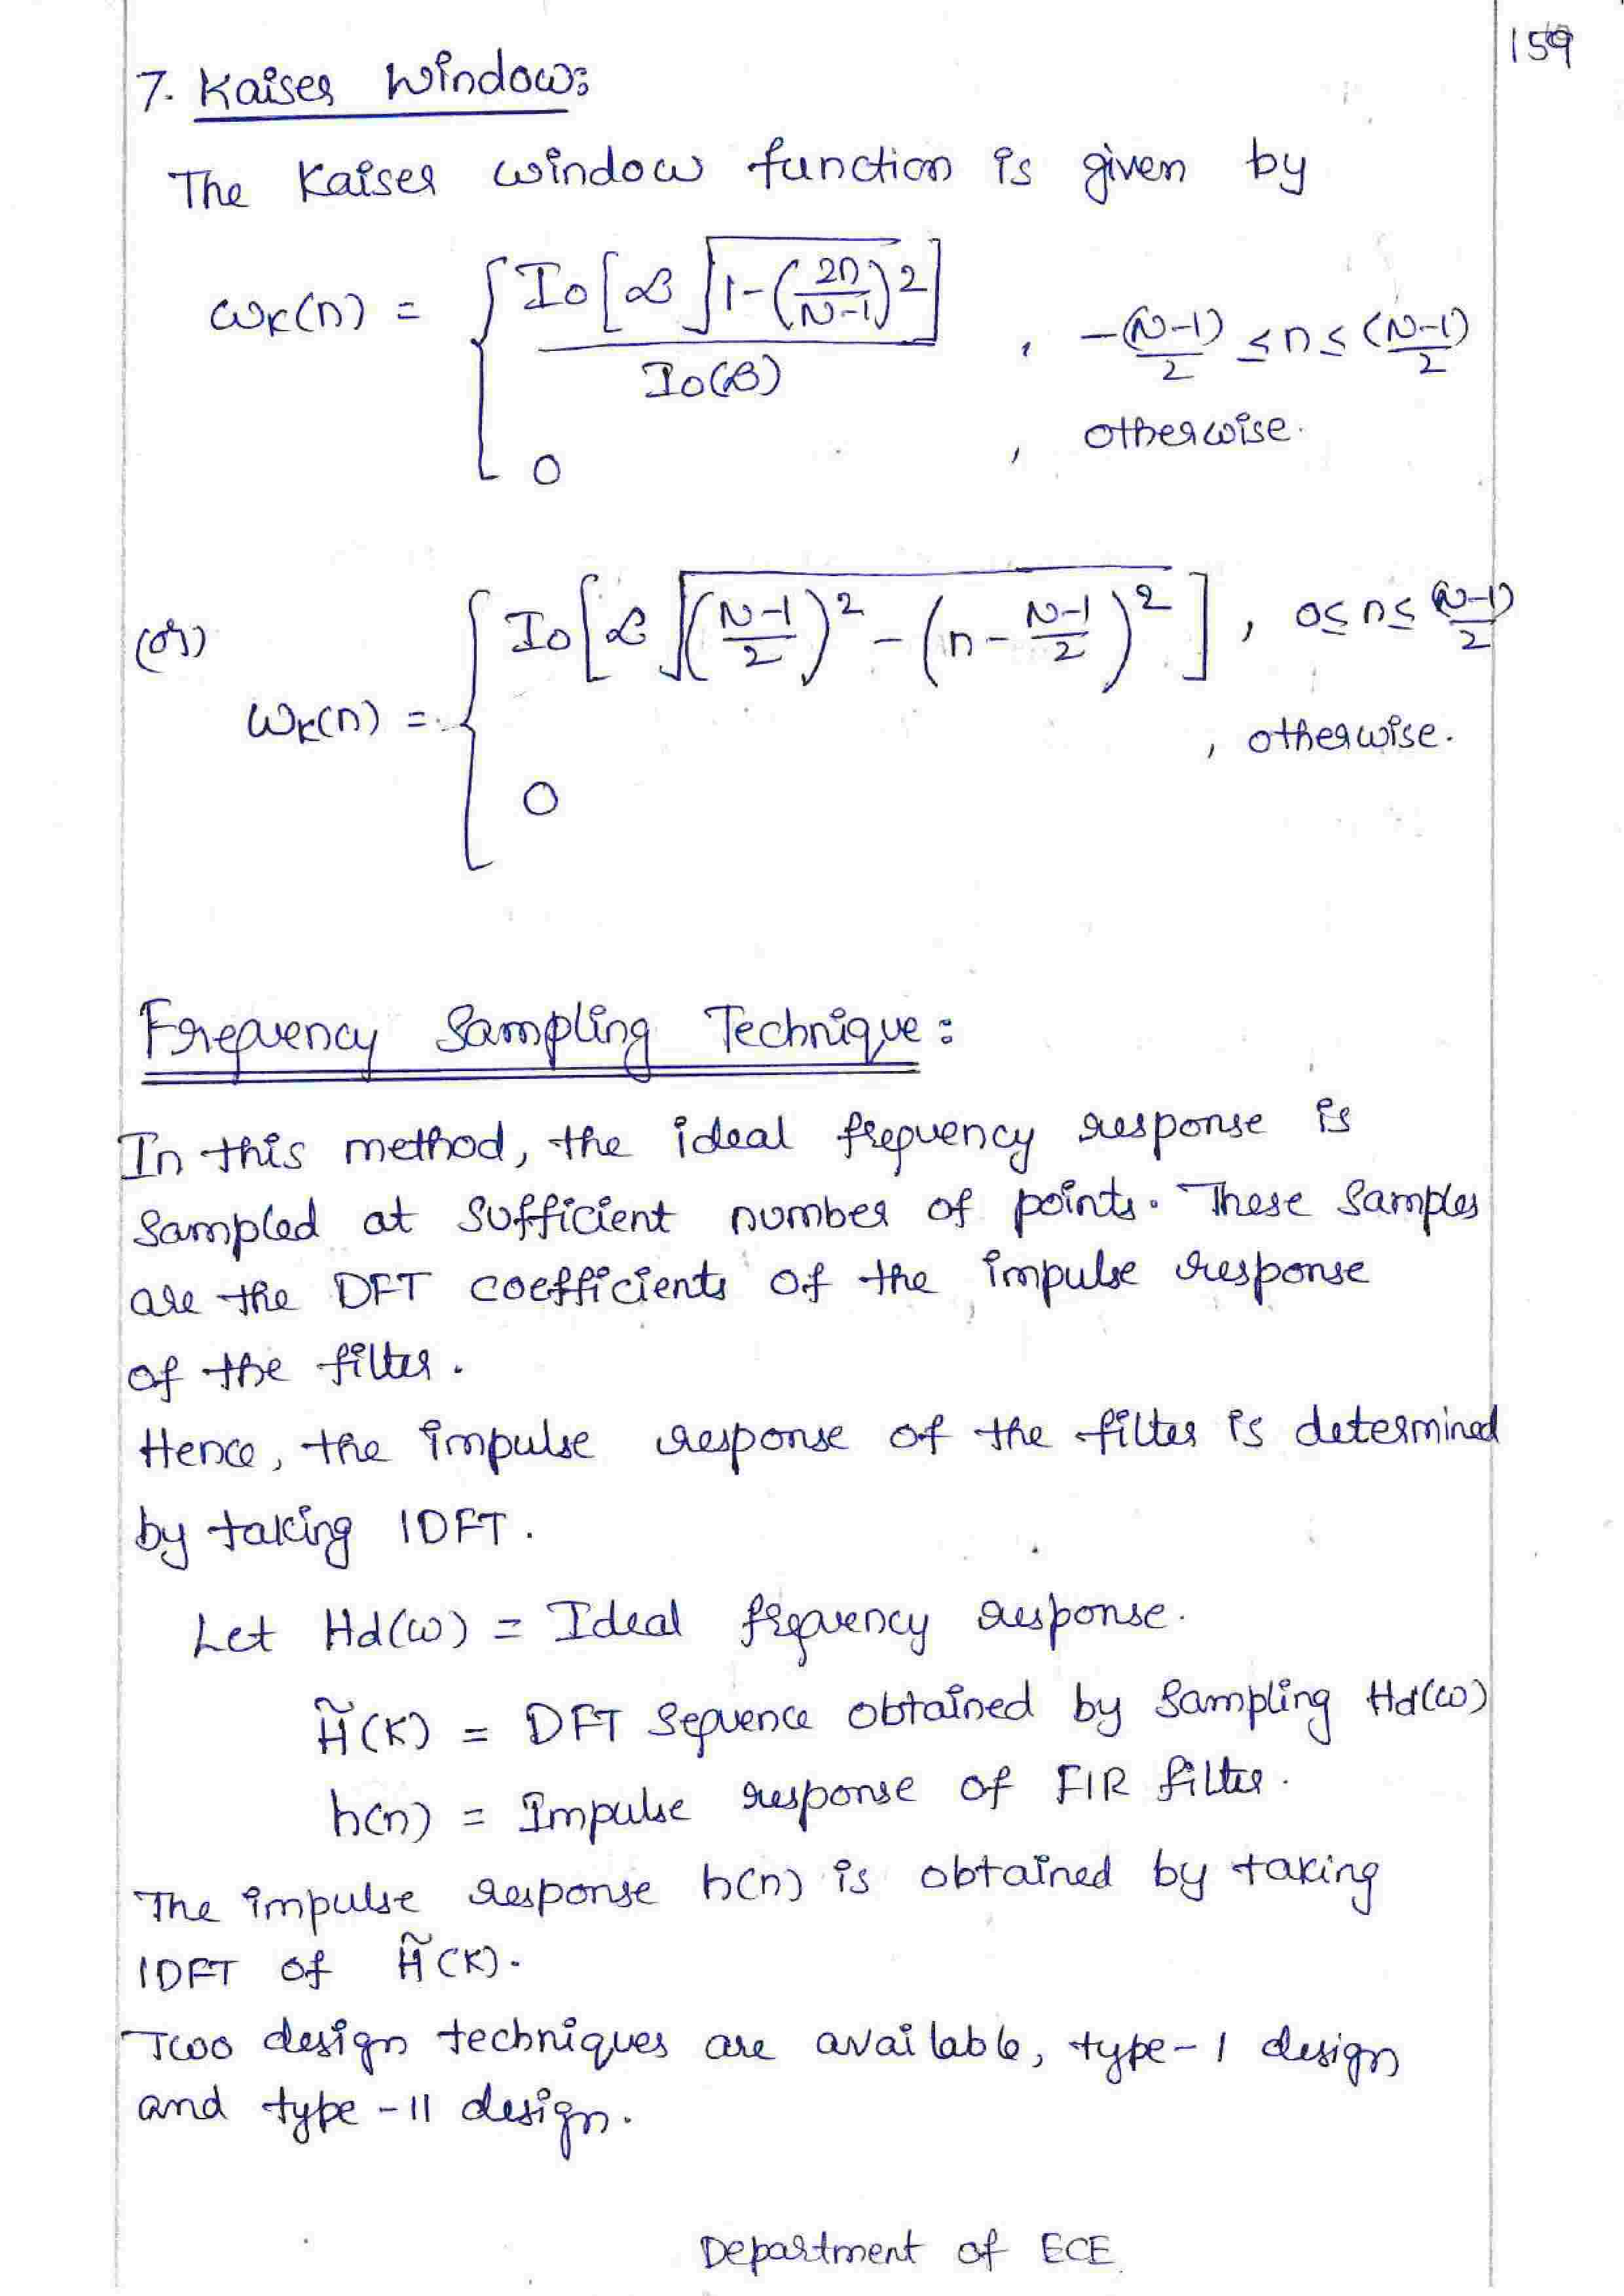 159
7. Kaiser Window:
The Kaiser window function is given by
ωK(n) = { I0[β √(1-(2n/(N-1))²)] / I0(β) , -(N-1)/2 ≤ n ≤ (N-1)/2
0 , otherwise.
(or)
ωK(n) = { I0[α √(((N-1)/2)² - (n - (N-1)/2)²)] , 0 ≤ n ≤ (N-1)/2
0 , otherwise.
Frequency Sampling Technique:
In this method, the ideal frequency response is
sampled at sufficient number of points. These samples
are the DFT coefficients of the impulse response
of the filter.
Hence, the impulse response of the filter is determined
by taking IDFT.
Let Hd(ω) = Ideal frequency response.
H̃(K) = DFT sequence obtained by sampling Hd(ω)
h(n) = Impulse response of FIR filter.
The impulse response h(n) is obtained by taking
IDFT of H̃(K).
Two design techniques are available, type-I design
and type-II design.
Department of ECE